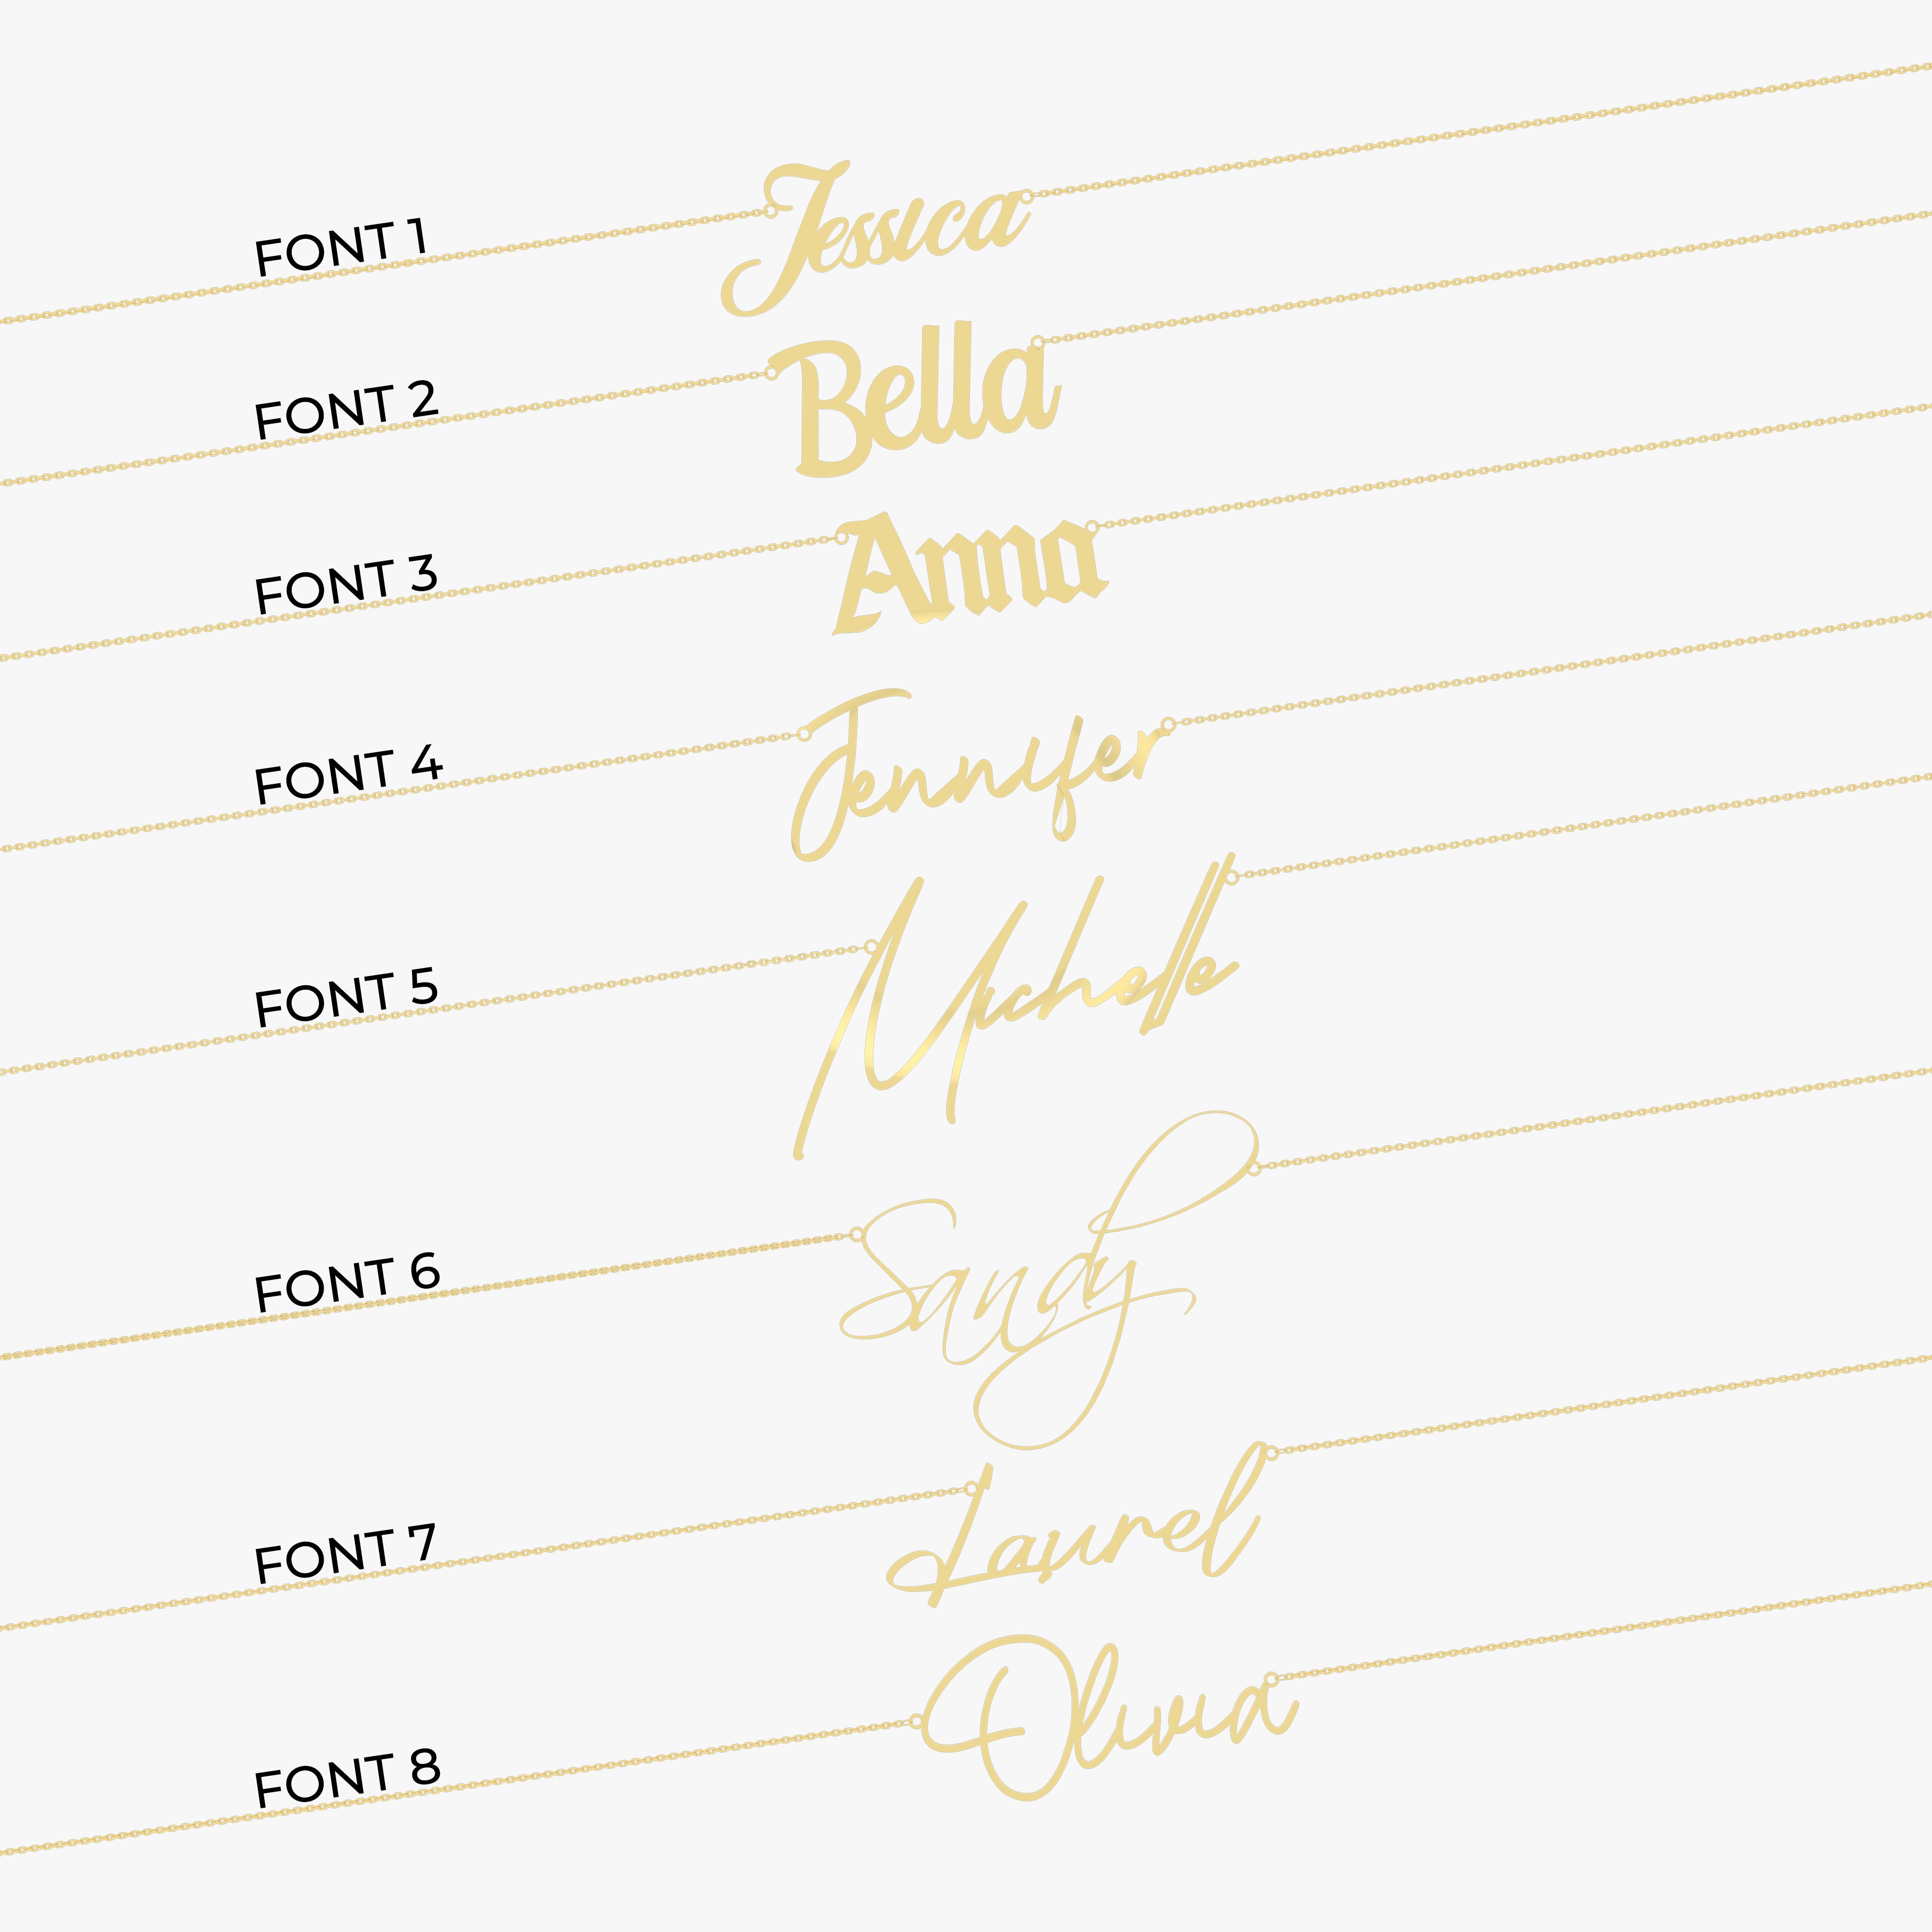 FONT 1 Jessica
FONT 2 Bella
FONT 3 Anna
FONT 4 Jennifer
FONT 5 Michelle
FONT 6 Sandy
FONT 7 Laurel
FONT 8 Olivia